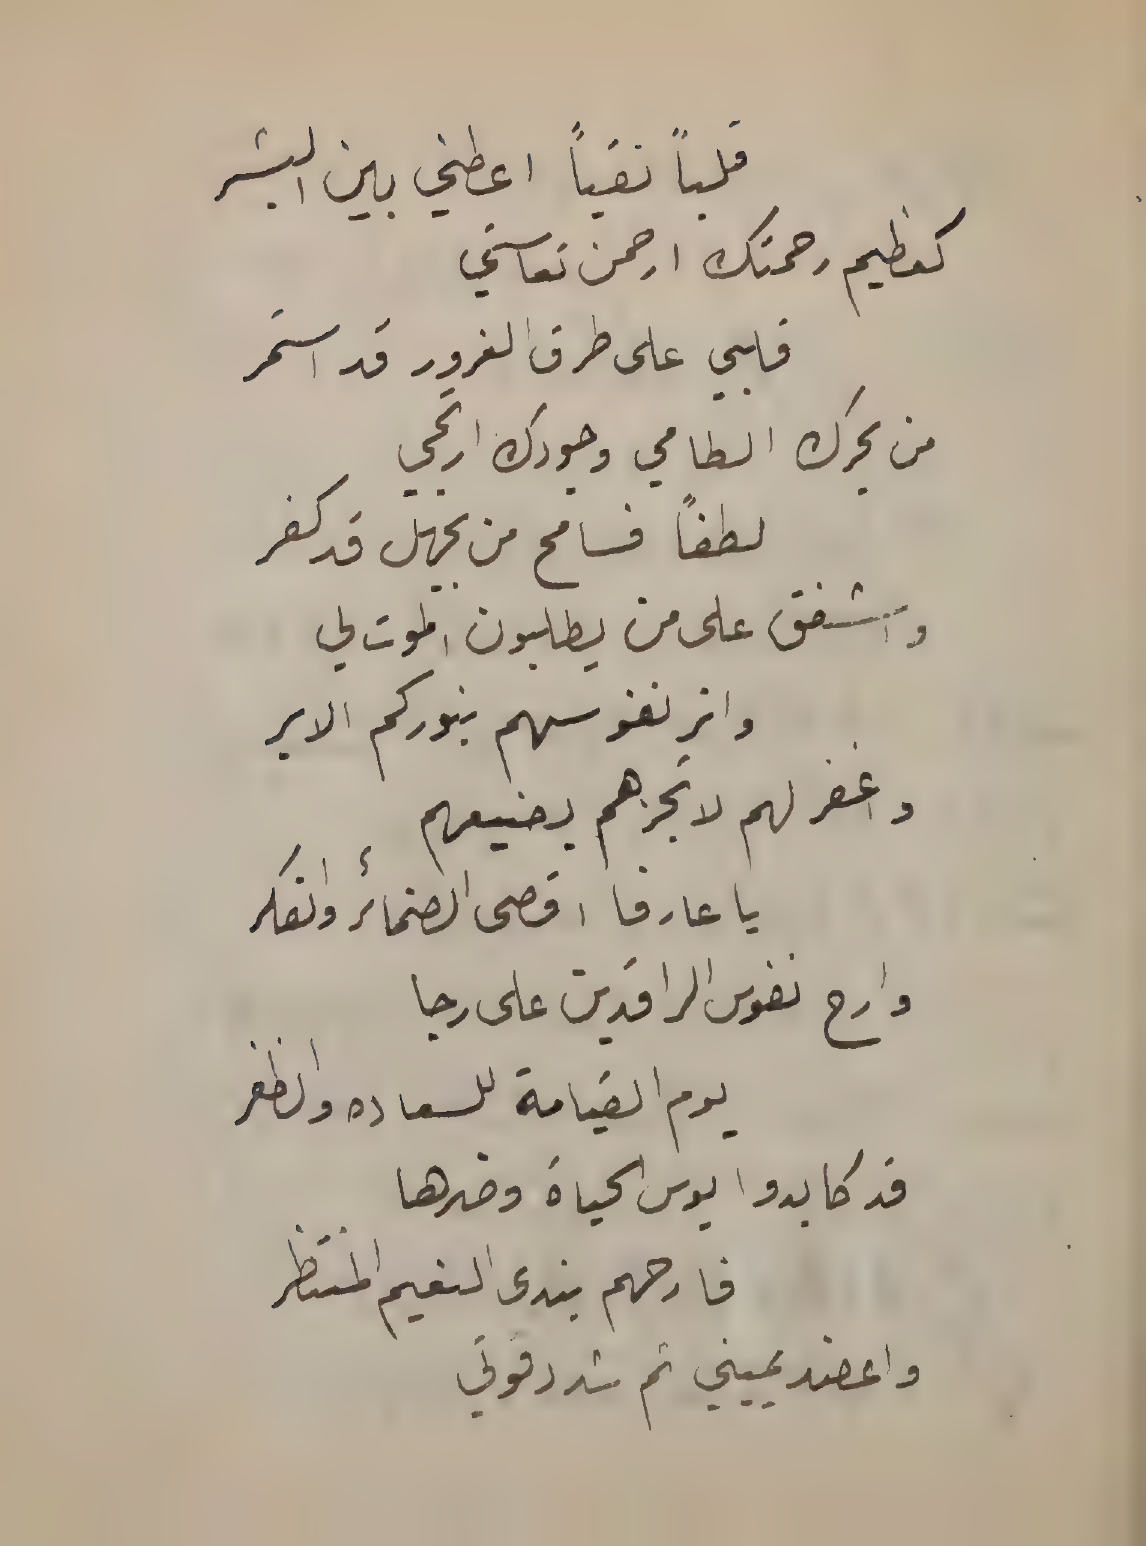 قلباً نقياً اعطني بين البشر
كعظيم رحمتك ارحمن تعاستي
قلبي على طرق الغرور قد استمر
من بحرك الطامي وجودك ارتجي
لطفاً فسامح من بجهل قد كفر
واشفق على من يطلبون الموت لي
وانر نفوسهم بنوركم الابر
واغفر لهم لا تجزهم بصنيعهم
يا عارفا اقصى الضمائر والفكر
وارح نفوس الراقدين على رجا
يوم القيامة للسعاده والظفر
قد كابدوا بوس الحياة وضرها
فارحمهم بندى النعيم المنتظر
واعضد يميني ثم شدد قوتي